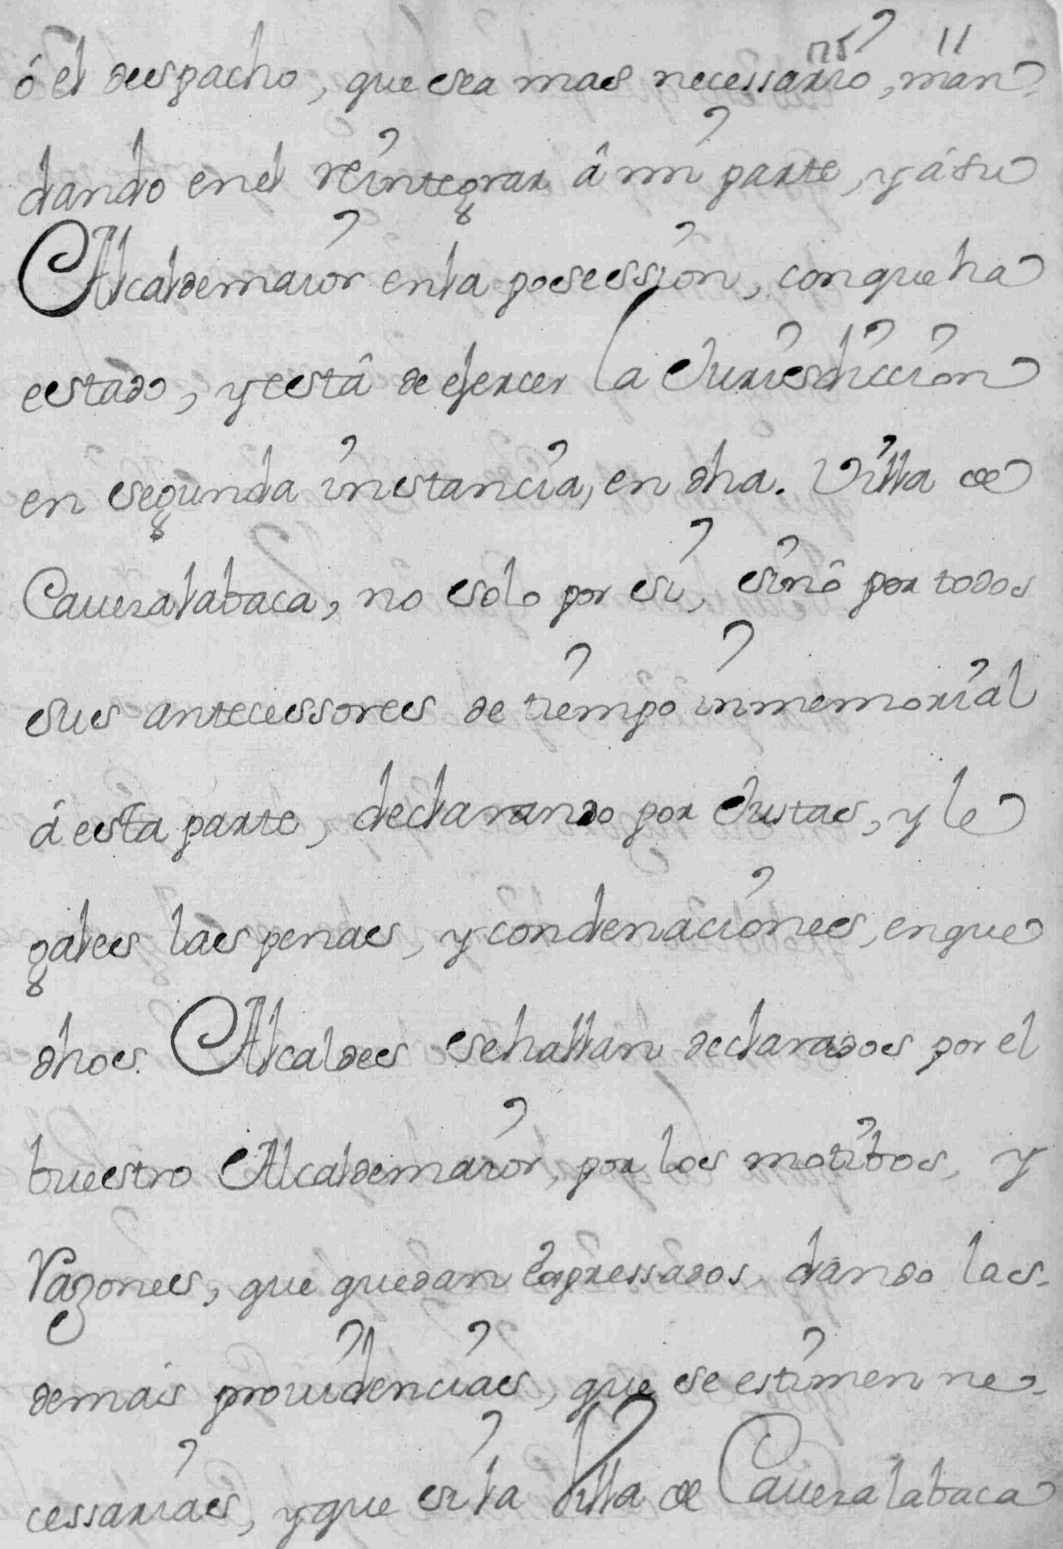 ó el despacho, que sea mas necessario, man
dando en el reintegrar â mi parte, y á su
Alcaldemaior en la posession, con que ha
estado, y está de ejercer la Jurisdiccion
en segunda instancia, en dha. Villa de
Caueza la baca, no solo por si, sinô por todos
sus antecessores de tiempo inmemorial
á esta parte, declarando por Justas, y le
gales las penas, y condenaciones, en que
dhos. Alcaldes se hallan declarados por el
buestro Alcaldemaior, por los motibos, y
Razones, que quedan expressados, dando las
demas prouidencias, que se estimen ne-
cessarias, y que si la Villa de Caueza la baca